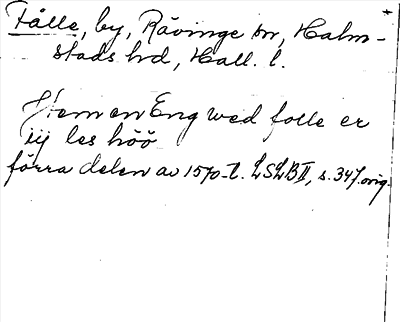 Fålle, by, Rävinge sn, Halm-
stads hd, Hall. l.
Item en Eng wed folle er
iij les höö
förra delen av 1570-t. LSLB II, s. 347. orig.